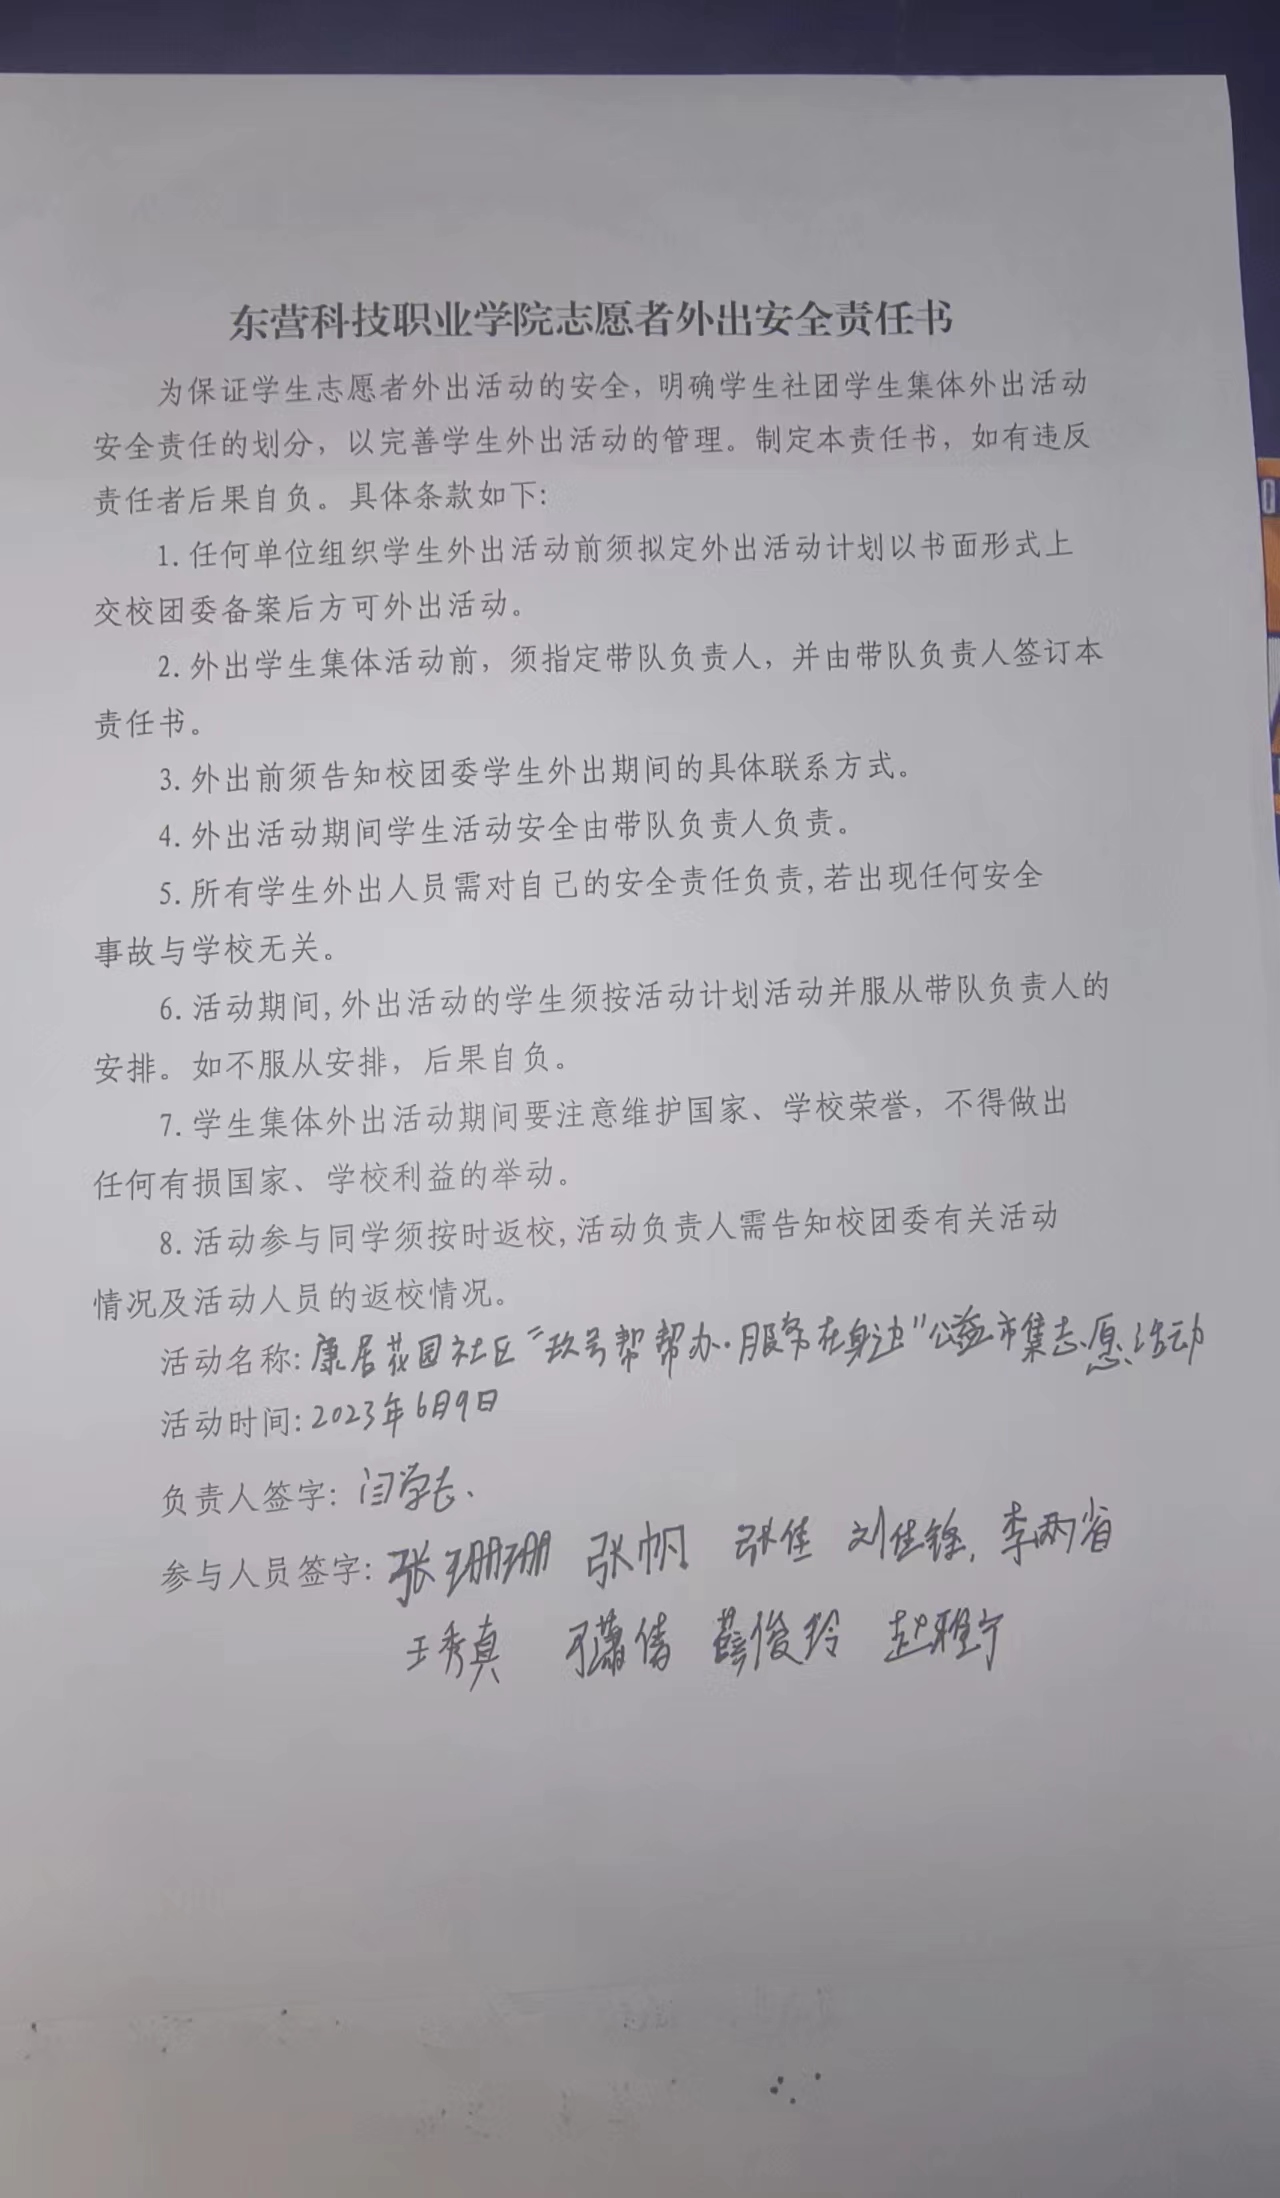 东营科技职业学院志愿者外出安全责任书
为保证学生志愿者外出活动的安全，明确学生社团学生集体外出活动
安全责任的划分，以完善学生外出活动的管理。制定本责任书，如有违反
责任者后果自负。具体条款如下:
1. 任何单位组织学生外出活动前须拟定外出活动计划以书面形式上
交校团委备案后方可外出活动。
2. 外出学生集体活动前，须指定带队负责人，并由带队负责人签订本
责任书。
3. 外出前须告知校团委学生外出期间的具体联系方式。
4. 外出活动期间学生活动安全由带队负责人负责。
5. 所有学生外出人员需对自己的安全责任负责, 若出现任何安全
事故与学校无关。
6. 活动期间, 外出活动的学生须按活动计划活动并服从带队负责人的
安排。如不服从安排，后果自负。
7. 学生集体外出活动期间要注意维护国家、学校荣誉，不得做出
任何有损国家、学校利益的举动。
8. 活动参与同学须按时返校, 活动负责人需告知校团委有关活动
情况及活动人员的返校情况。
活动名称: 康居花园社区“玖号帮帮办·服务在身边”公益市集志愿活动
活动时间: 2023年6月9日
负责人签字: 闫学志
参与人员签字: 张珊珊 张帆 张佳 刘佳锋 李雨省
王秀真 薛俊玲 赵雅宁